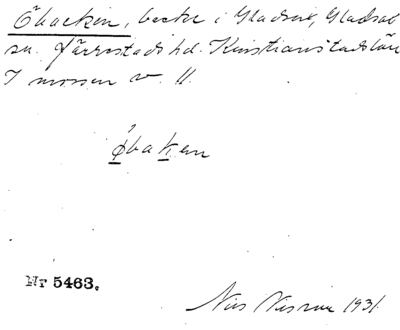 Öbacken, backe i Gladsax, Gladsax
sn. Järrestads hd. Kristianstads län
I mossen v. ll.
Ǿbaken
Nr 5463.
Nils 1931